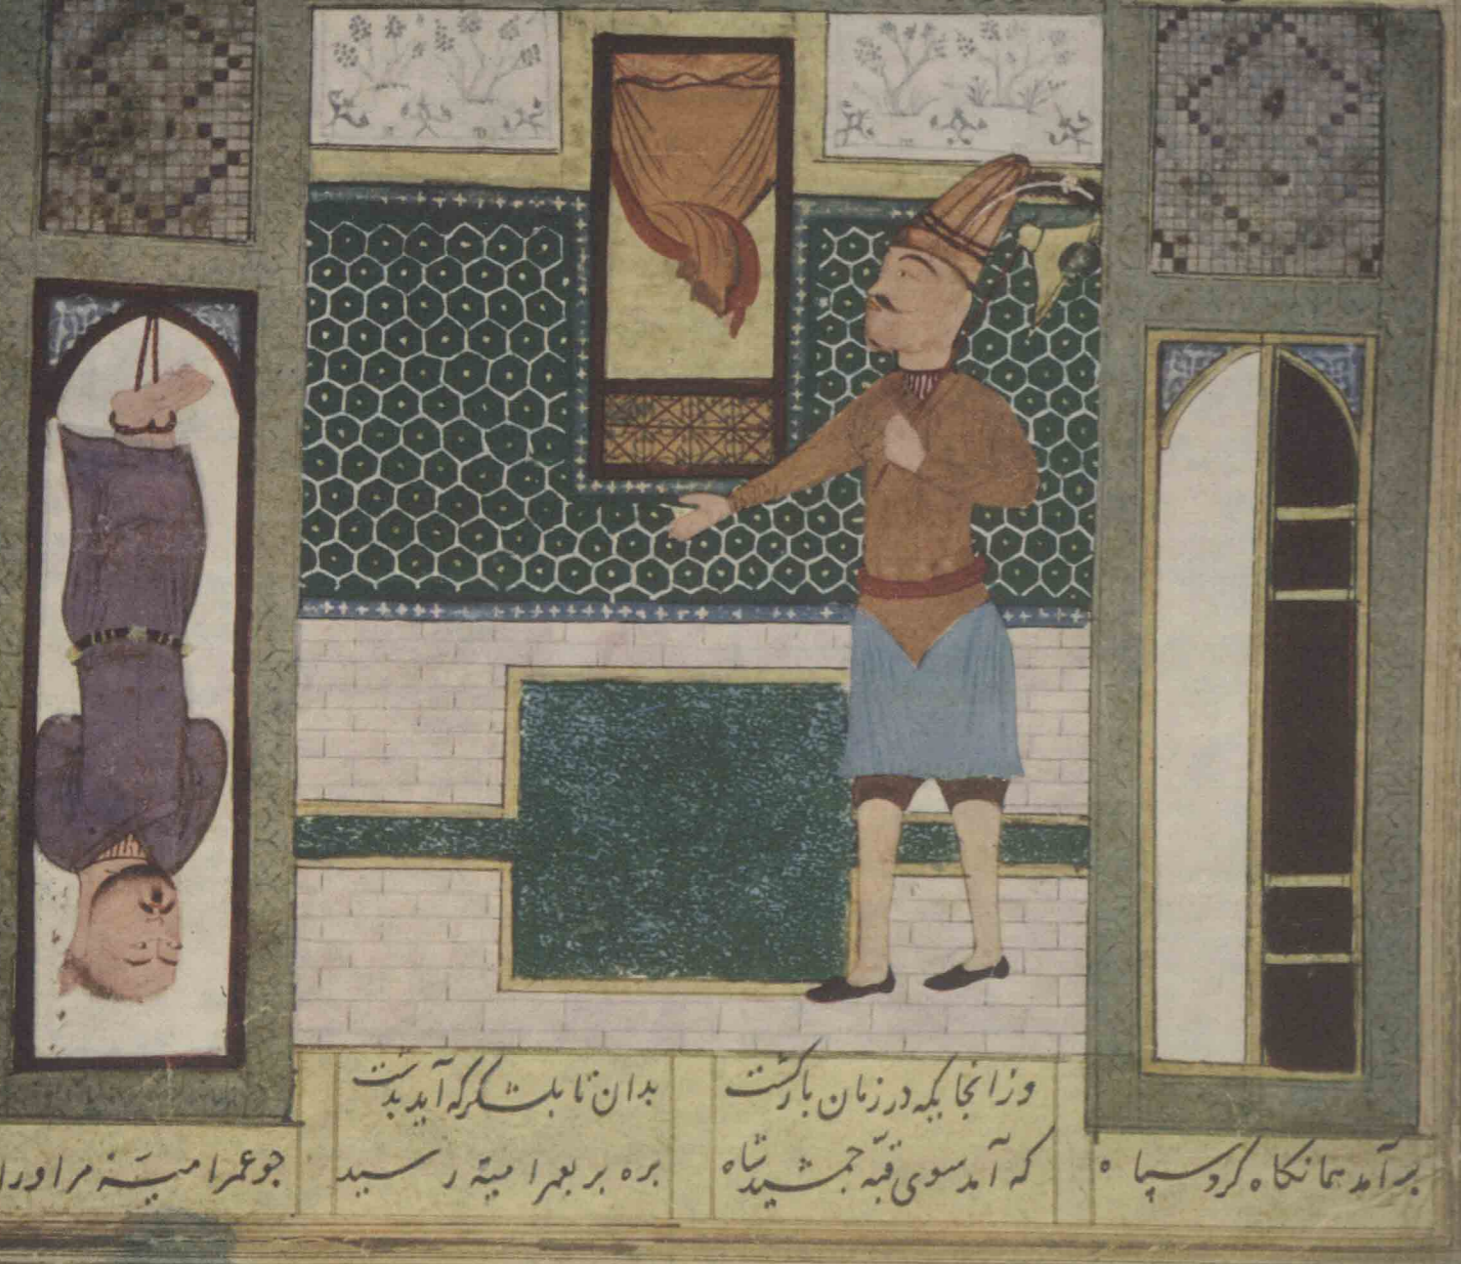 وزانجا یکه در زمان بازگشت بدان تا بلشکر که آید بدشت
برآمد همانگاه گرد سپاه که آمد سوی قبّه جمشید شاه بره بر بعمرامیّه رسید چو عمرامیّه مر اورا